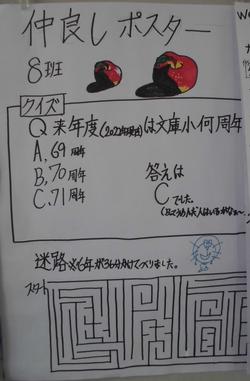 仲良しポスター
8班
クイズ
Q来年度(2022年現在)は文庫小何周年
A,69周年
B,70周年
C,71周年
答えは
Cでした。
迷路※6年が36分かけてつくりました。
スタート